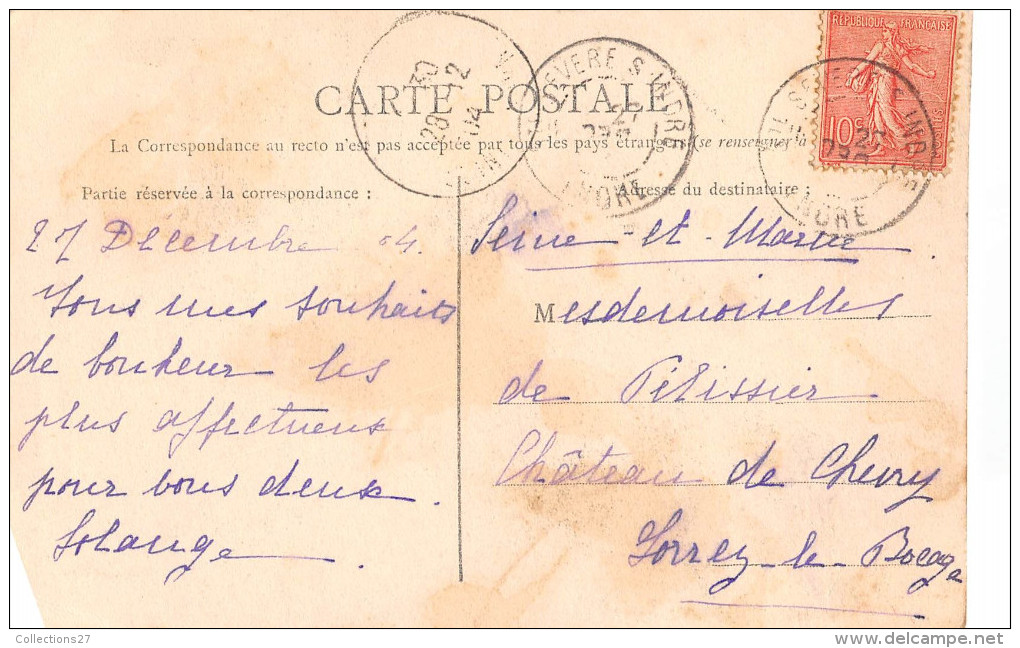 RÉPUBLIQUE FRANÇAISE
10 c
POSTES
CARTE POSTALE
La Correspondance au recto n'est pas acceptée par tous les pays étrangers (se renseigner à
Partie réservée à la correspondance :
Adresse du destinataire :
27 Decembre 04.
Tous mes souhaits
de bonheur les
plus affectueux
pour vous deux.
Solange
Seine-et-Marne
Mesdemoiselles
de Pélissier
Château de Chevry
Lorrez-le-Bocage
30
28 12
04
SEVERE S INDRE
27
INDRE
INDRE
27
INDRE
Collections27
delcampe.net